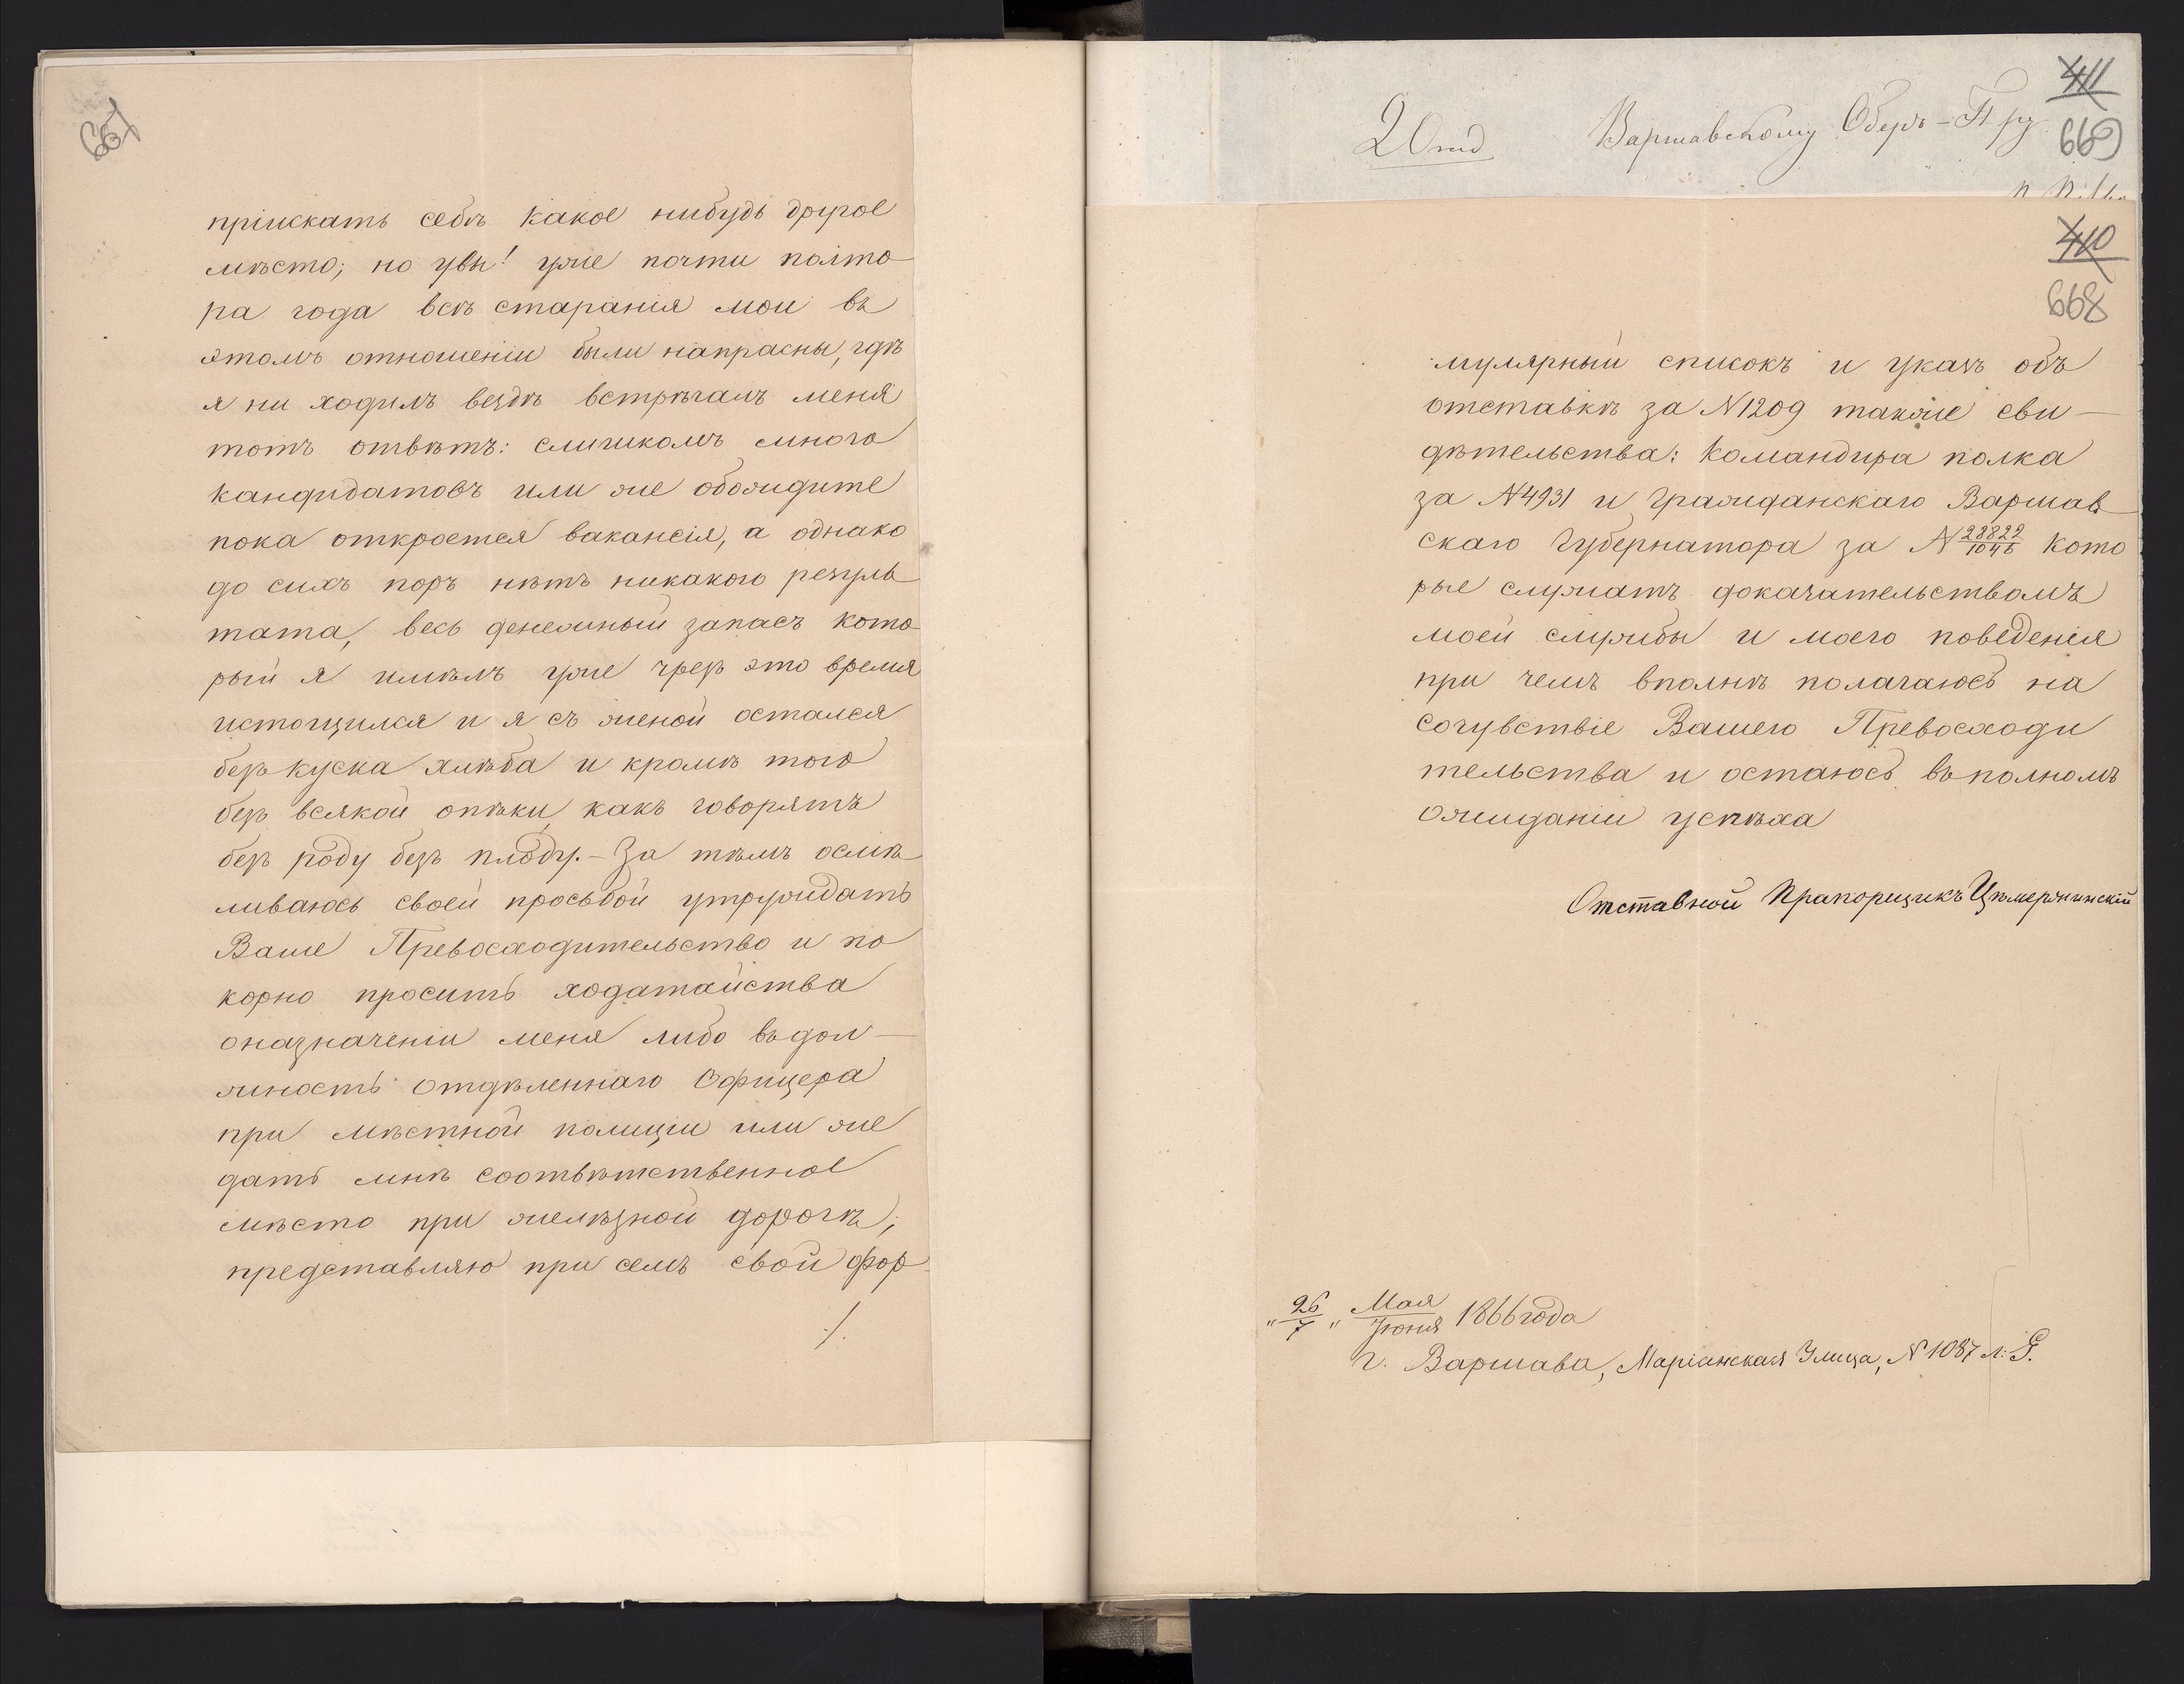 667
пріискать себѣ какое нибудь другое
мѣсто; но увы! уже почти полто
ра года всѣ старанія мои въ
этомъ отношеніи были напрасны, гдѣ
я ни ходилъ вездѣ встрѣчалъ меня
тотъ отвѣтъ: слишкомъ много
кандидатовъ или же обождите
пока откроется вакансія, а однако
до сихъ поръ нѣтъ никакого резуль
тата, весь денежный запасъ кото
рый я имѣлъ уже чрез это время
истощился и я съ женой остался
безъ куска хлѣба и кромѣ того
безъ всякой опѣки, какъ говорятъ
безъ роду безъ плоду. – За тѣмъ осмѣ
ливаюсь своей просьбой утруждать
Ваше Превосходительство и по
корно просить ходатайства
о назначеніи меня либо въ дол–
жность отдѣленнаго Офицера
при мѣстной полиціи или же
дать мнѣ соотвѣтственное
мѣсто при желѣзной дорогѣ;
представляю при семъ свой фор
·/.
411
2 Отд Варшавскому Оберъ-П
669
410
668
мулярный списокъ и указъ объ
отставкѣ за №1209 также сви–
дѣтельства: Командира полка
за №4931 и Гражданскаго Варшав
скаго Губернатора за № 28822/1046 кото
рые служатъ доказательствомъ
моей службы и моего поведенія
при чемъ вполнѣ полагаюсь на
сочувствіе Вашего Превосходи
тельства и остаюсь въ полномъ
ожиданіи успѣха
Отставной Прапорщикъ
„26/7„ Мая/Іюня 1866 года
г. Варшава, Маріанская Улица, №1087 л: G.